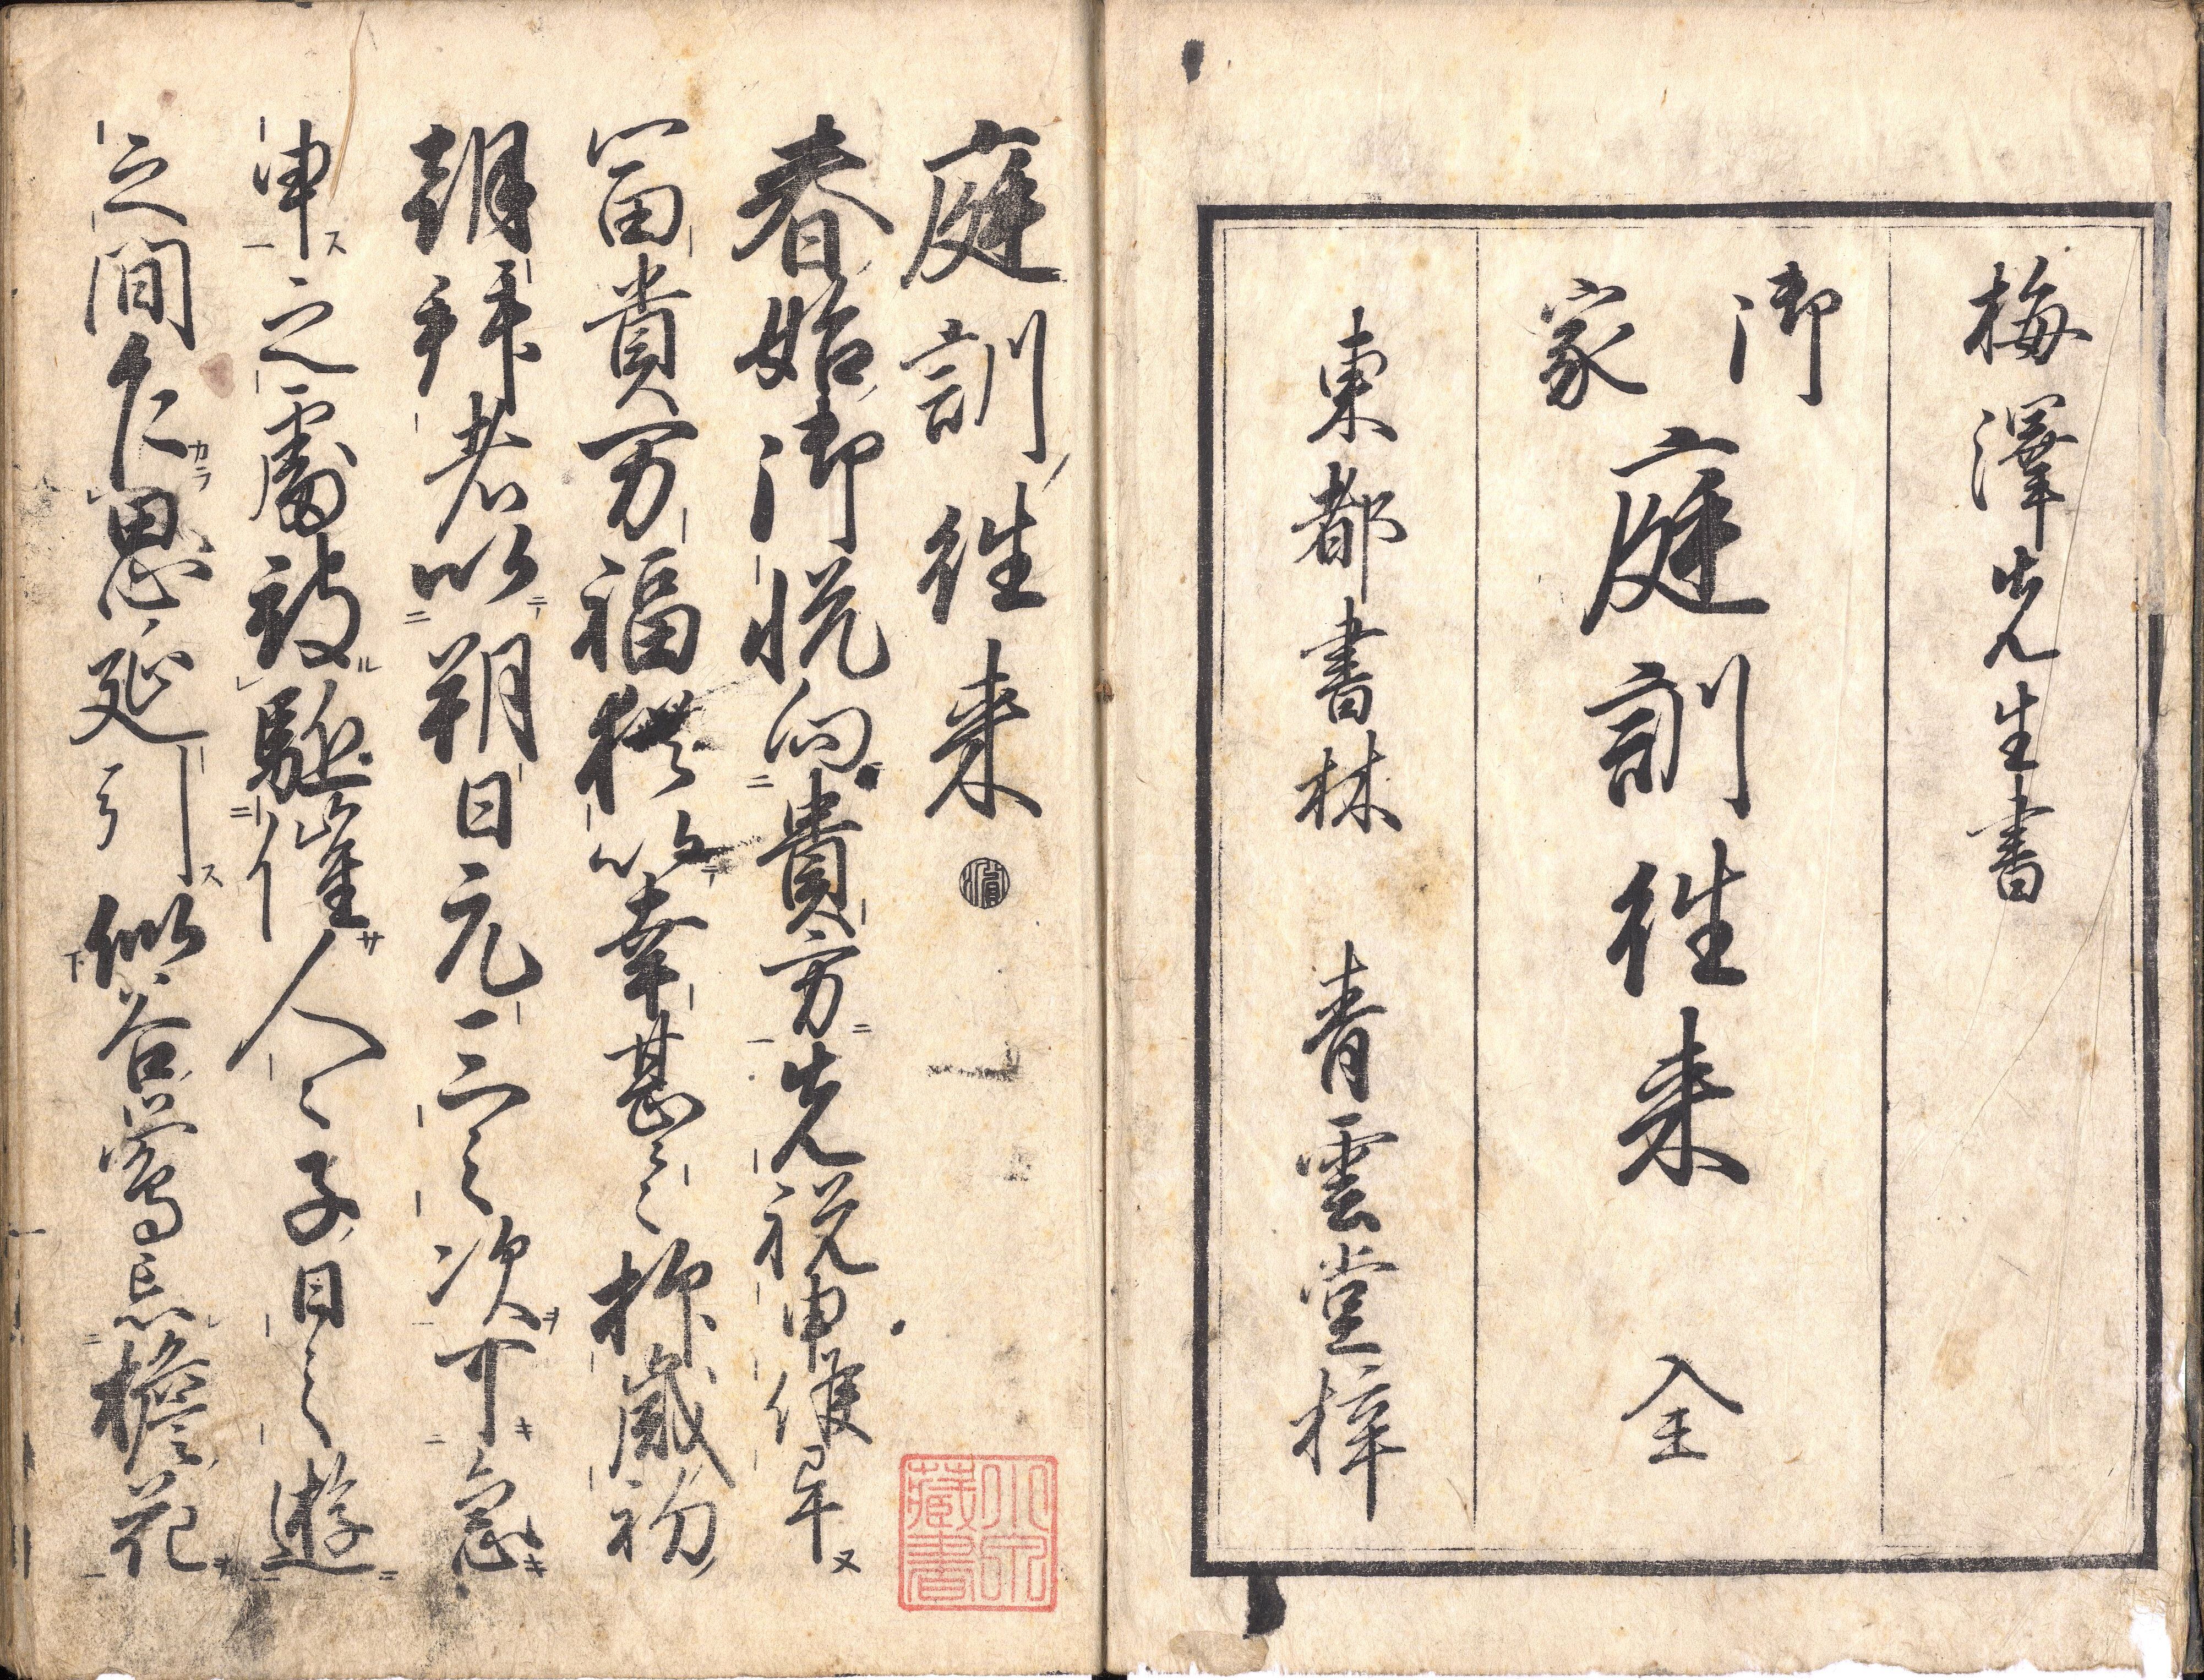 梅澤先生書
御家
庭訓往来 全
東都書林 青雲堂梓
庭訓往来
春始御悦向貴方先祝申候畢
冨貴万福猶以幸甚々抑歳初
朝拝者以朔日元三之次可急
申之處被駈催人々子日之遊
之間乍思延引似谷鶯忘檐花
藏書